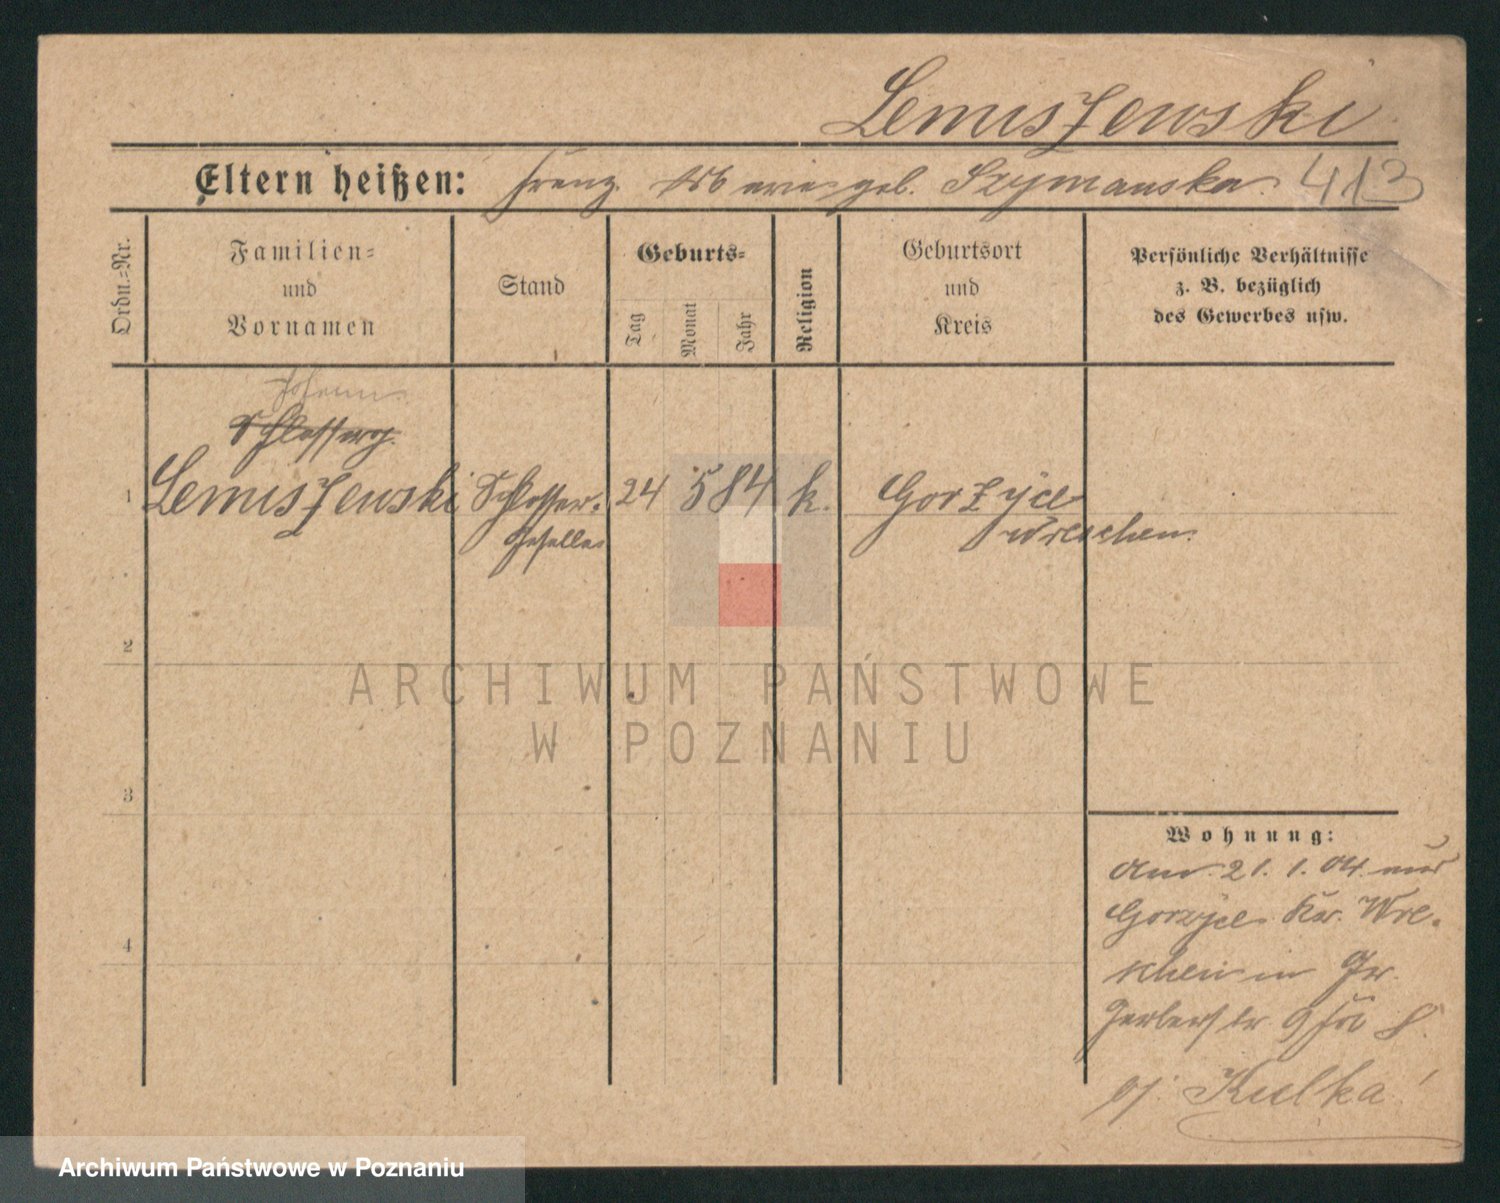 Lemiszewski
Eltern heißen: Franz. geb. Szymanska. 413
Ordn.-Nr.
Familien-
und
Vornamen
Stand
Geburts-
Tag
Monat
Jahr
Religion
Geburtsort
und
Kreis
Persönliche Verhältnisse
z. B. bezüglich
des Gewerbes usw.
Johann
Schlosserg.
1 Lemiszewski Schlosser- 24 5 84 k. Gorzyce
Geselle Wreschen.
2
ARCHIWUM PAŃSTWOWE
W POZNANIU
3
Wohnung:
Am 21. 1. 04. aus
Gorzyce Kr. Wre-
schen in Gr.
Gerberstr 9
bj. Kulka!
4
Archiwum Państwowe w Poznaniu